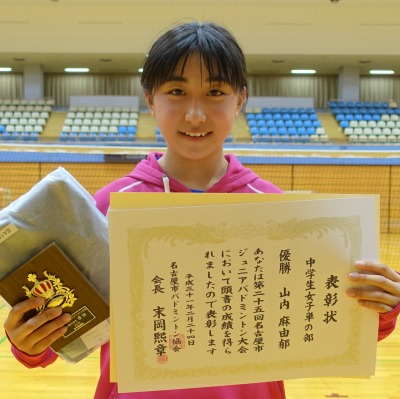 表彰状
中学生女子単の部
優勝　山内　麻由郁
あなたは第二十五回名古屋市
ジュニアバドミントン大会
において頭書の成績を得ら
れましたので表彰します
平成三十一年二月二十四日
名古屋市バドミントン協会
会長　末岡熙章